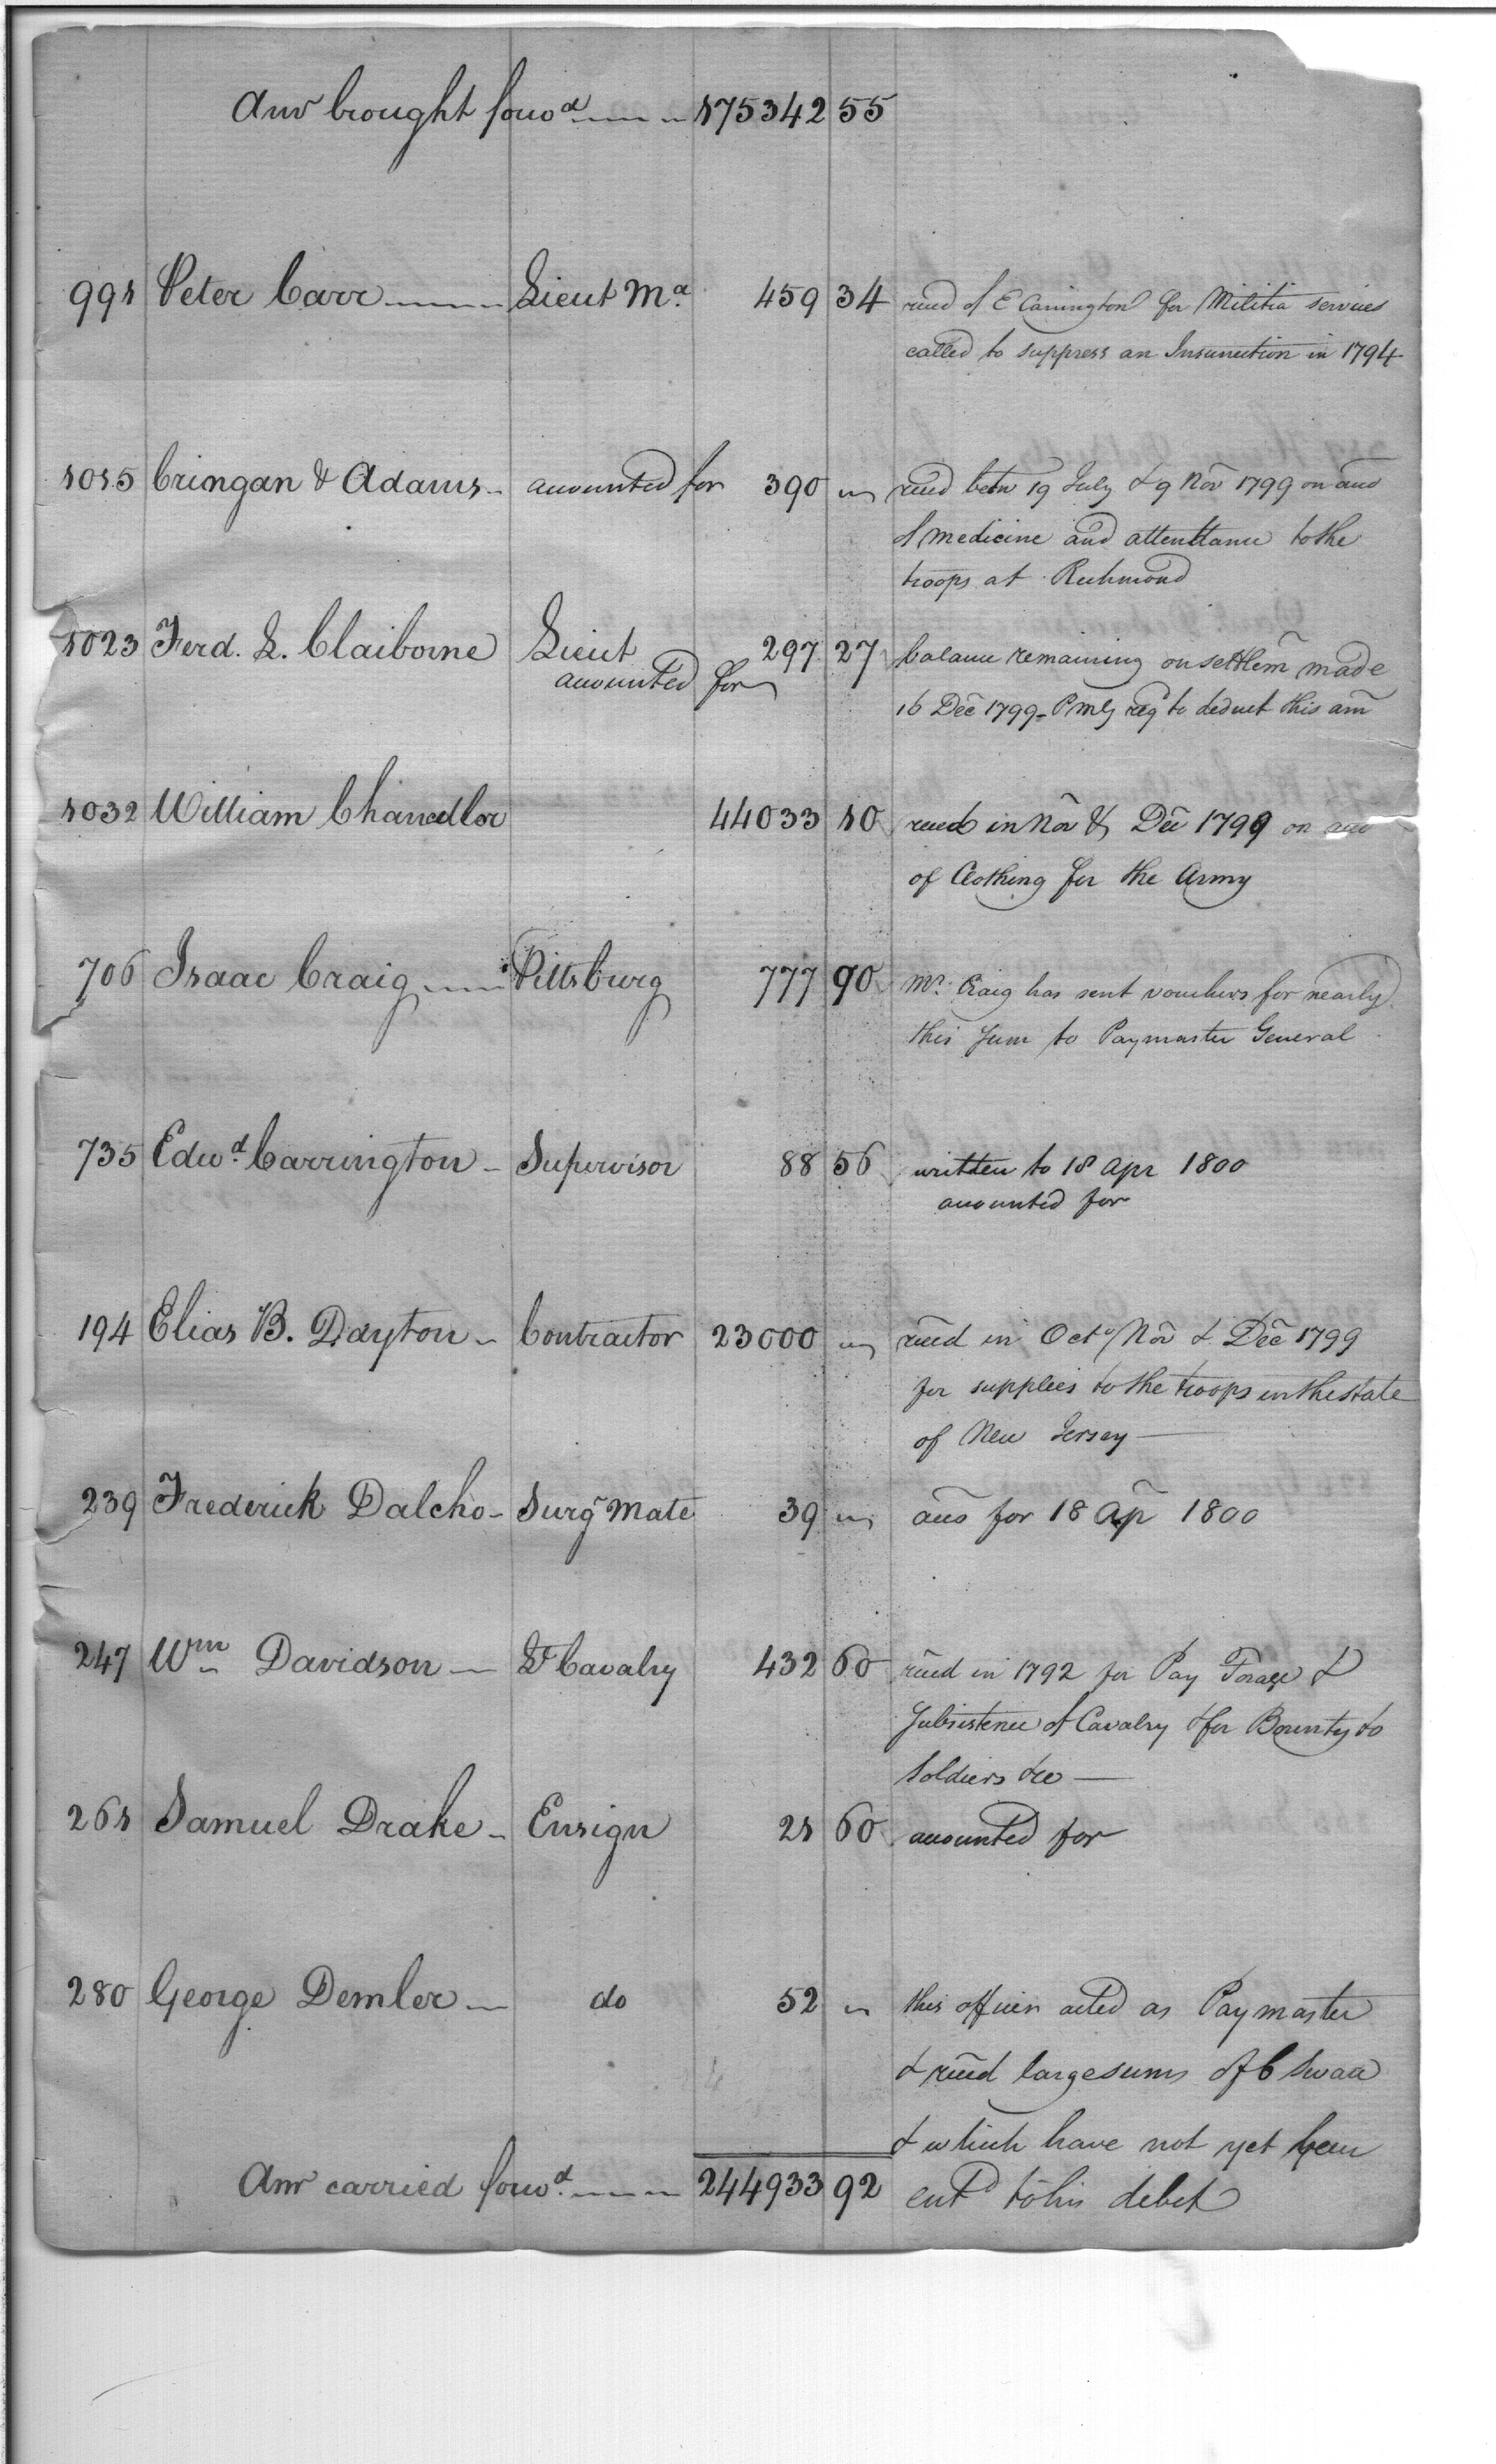 Amt brought forwd 175342 55
991 Peter Carr Lieut Ma 459 34 recd of E Carrington for Militia services
called to suppress an Insurrection in 1794
1015 Cringan & Adams accounted for 390 " recd betw 19 July & 9 Nov 1799 on acco
of medicine and attendance to the
troops at Richmond
1023 Ferd. L. Claiborne Lieut 297 27 balance remaining on settlem made
accounted for
16 Dec 1799 - P M G reqd to deduct this am
1032 William Chancellor 44033 10 recd in Nov & Dec 1799 on acco
of Clothing for the Army
706 Isaac Craig Pittsburg 777 90 Mr. Craig has sent vouchers for nearly
this sum to Paymaster General
735 Edwd. Carrington Supervisor 88 56 written to 18 Apr 1800
accounted for
194 Elias B. Dayton Contractor 23000 " recd in Octo, Nov & Dec 1799
for supplies to the troops in the state
of New Jersey
239 Frederick Dalcho Surgs Mate 39 " acco for 18 Ap 1800
247 Wm Davidson Lt Cavalry 432 60 recd in 1792 for Pay Forage &
Subsistence of Cavalry & for Bounty to
Soldiers &c
261 Samuel Drake Ensign 21 60 accounted for
280 George Demler do 52 " this officer acted as Paymaster
& recd large sums of C Swaa
& which have not yet been
Amt carried forwd. 244933 92 entd to his debit